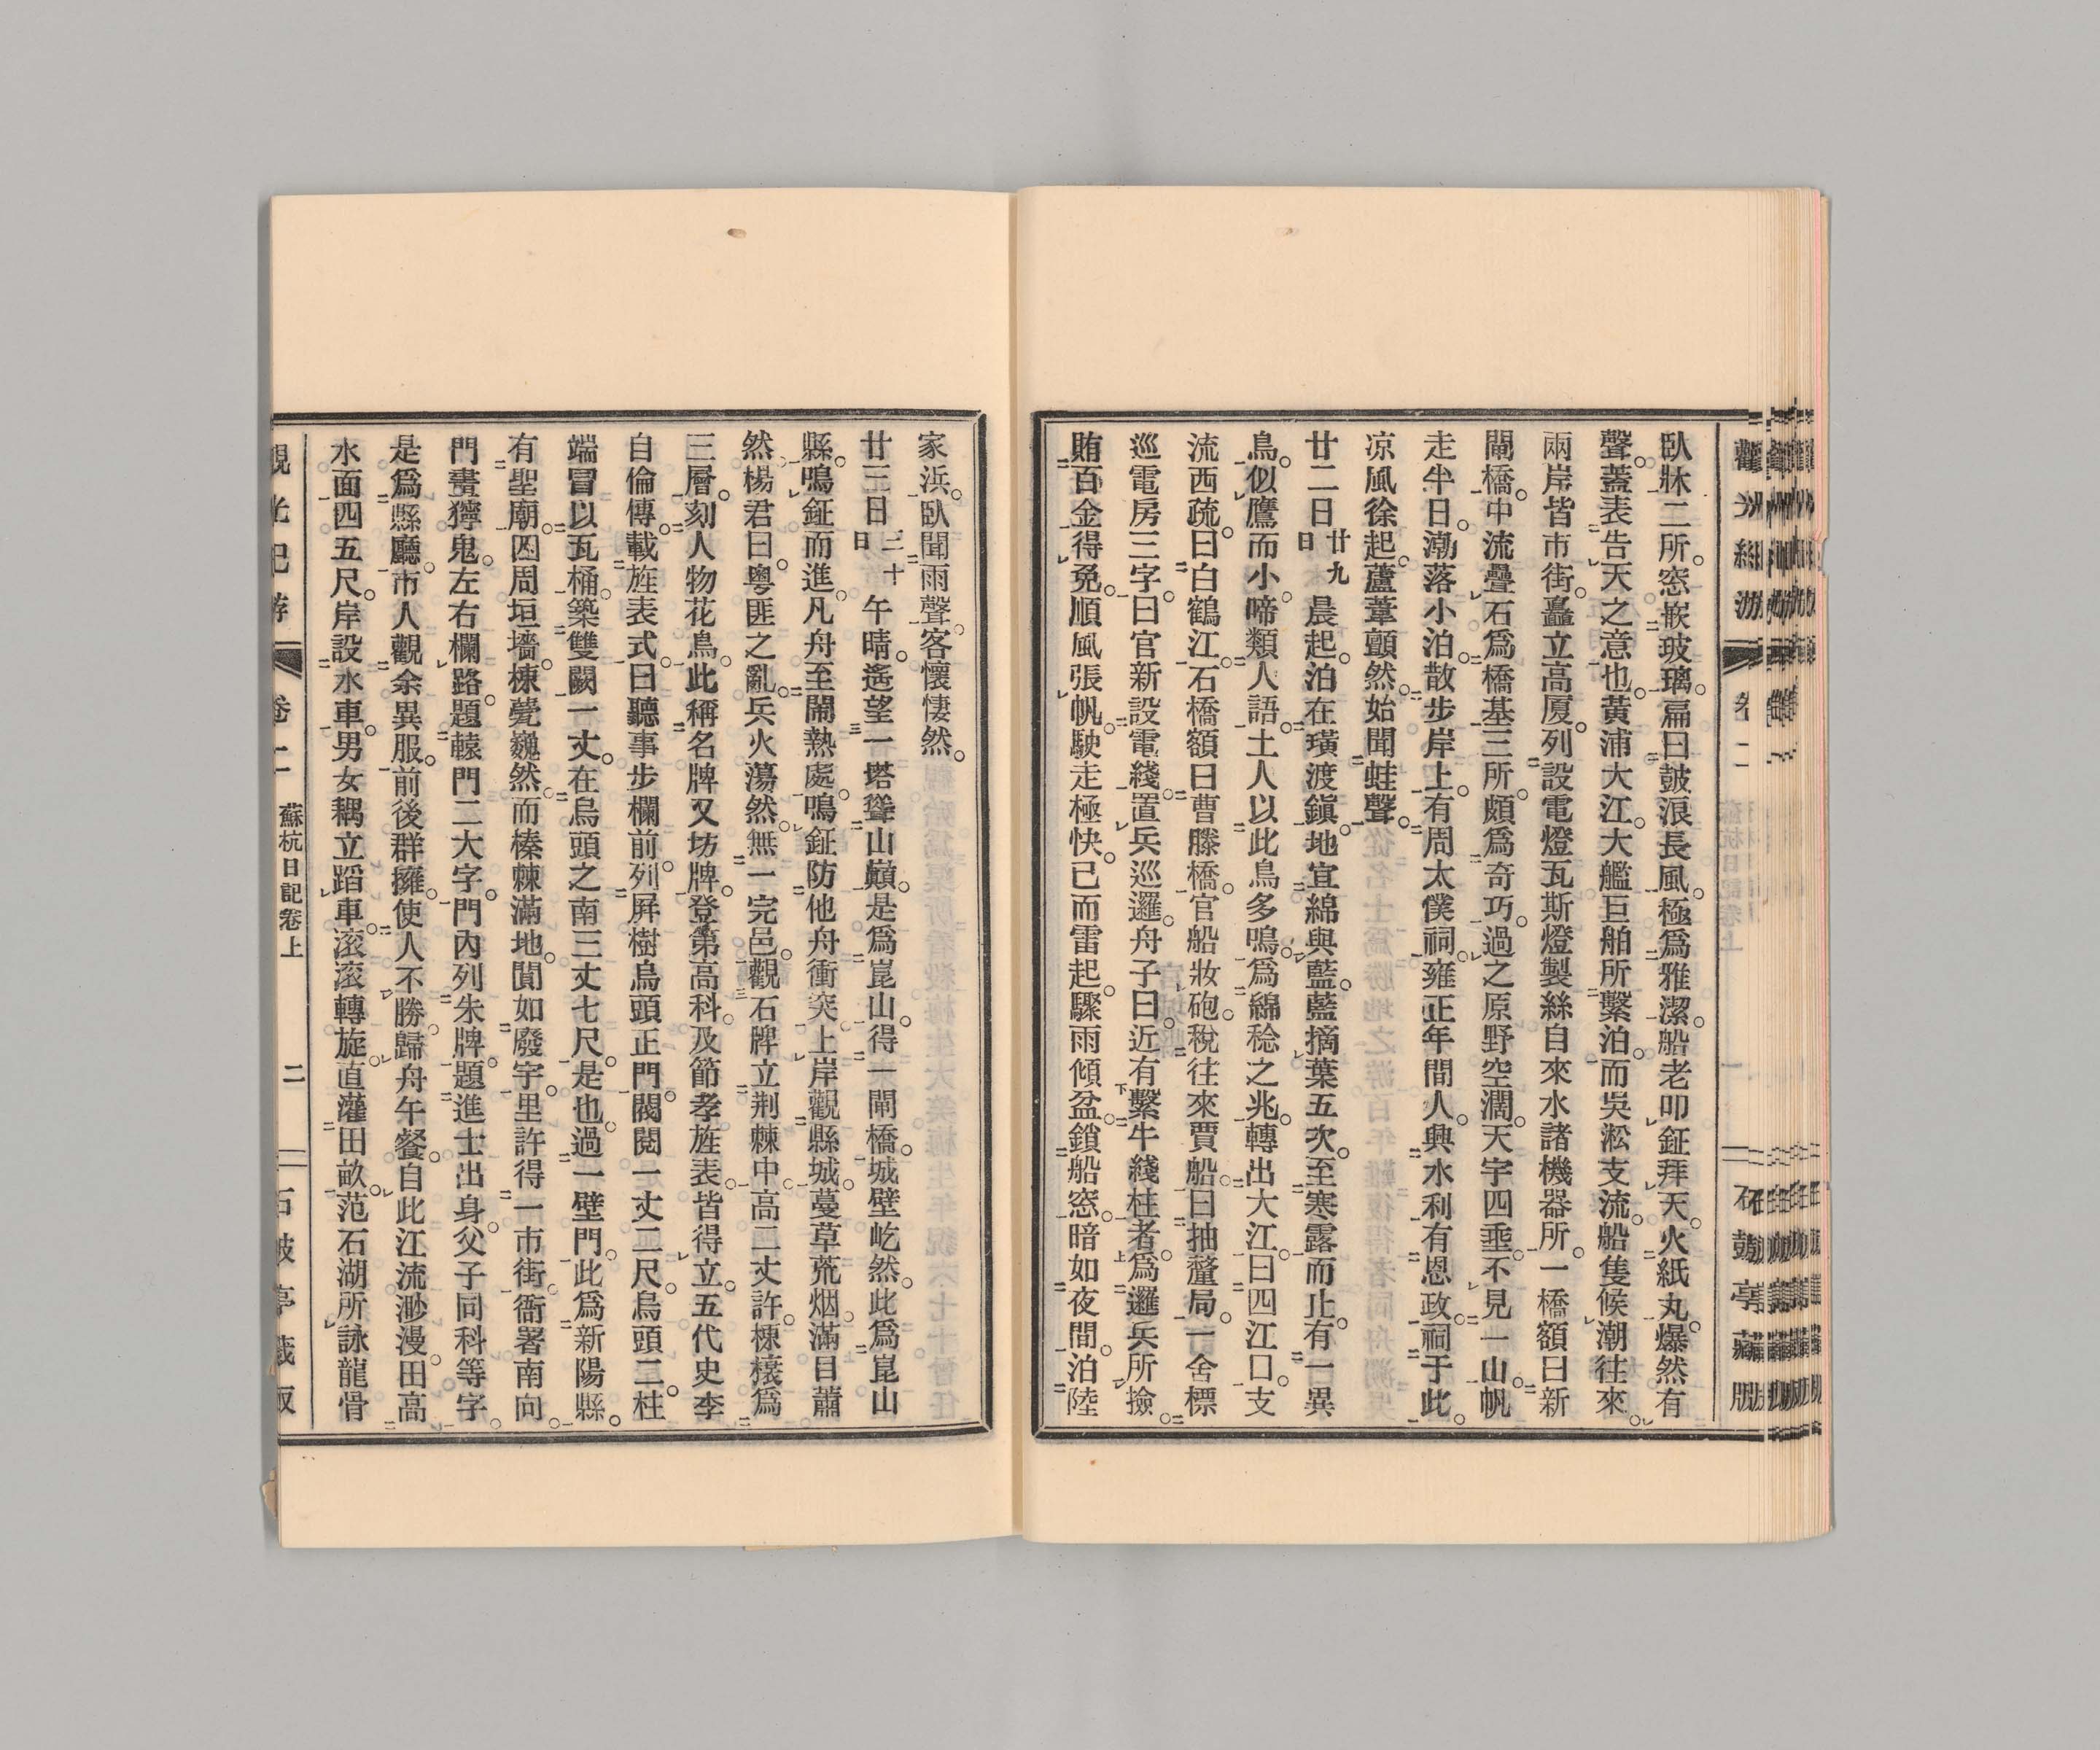 臥牀二所。窓嵌玻璃。扁曰皷浪長風。極爲雅潔。船老叩鉦拜天。火紙丸。爆然有
聲。蓋表告天之意也。黃浦大江。大艦巨舶所繫泊。而吳淞支流。船隻候潮往來。
兩岸皆市街。矗立高厦。列設電燈瓦斯燈製絲自來水諸機器所。一橋額曰新
閘橋。中流疊石爲橋基三所。頗爲奇巧。過之原野空濶。天宇四垂。不見一山。帆
走半日。潮落小泊。散步岸上。有周太僕祠。雍正年間人。興水利有恩政。祠于此。
凉風徐起。蘆葦顫然。始聞蛙聲。
廿二日廿九日晨起。泊在璜渡鎭。地宜綿與藍。藍摘葉五次。至寒露而止。有一異
鳥。似鷹而小。啼類人語。土人以此鳥多鳴。爲綿稔之兆。轉出大江。曰四江口。支
流西疏。曰白鶴江。石橋額曰曹滕橋。官船妝砲。稅往來賈船。曰抽釐局。一舍標
巡電房三字。曰官新設電綫。置兵巡邏。舟子曰。近有繫牛綫柱者。爲邏兵所撿。
賄百金得免。順風張帆。駛走極快。已而雷起。驟雨傾盆。鎖船窓。暗如夜間。泊陸
家浜。臥聞雨聲。客懷悽然。
廿三日三十日午晴。遙望一塔聳山巓。是爲崑山。得一閘橋。城壁屹然。此爲崑山
縣。鳴鉦而進。凡舟至閙熱處。鳴鉦防他舟衝突。上岸觀縣城。蔓草荒烟。滿目蕭
然。楊君曰。粵匪之亂。兵火蕩然。無一完邑。觀石牌立荆棘中。高二丈許。棟榱爲
三層。刻人物花鳥。此稱名牌。又坊牌。登第高科。及節孝旌表。皆得立。五代史李
自倫傳。載旌表式。曰聽事步欄前。列屛樹烏頭正門。閥閱一丈二尺。烏頭二柱。
端冒以瓦桶。築雙闕一丈。在烏頭之南三丈七尺。是也。過一壁門。此爲新陽縣。
有聖廟。四周垣墻。棟甍巍然。而榛棘滿地。闃如廢宇。里許得一市街。衙署南向。
門畫獰鬼。左右欄路。題轅門二大字。門內列朱牌。題進士出身。父子同科等字。
是爲縣廳。市人觀余異服。前後群擁。使人不勝。歸舟午餐。自此江流渺漫。田高
水面四五尺。岸設水車。男女耦立蹈車。滚滚轉旋。直灌田畝。范石湖所詠龍骨
觀光紀游 卷二 蘇杭日記卷上 二 石鼓亭藏版